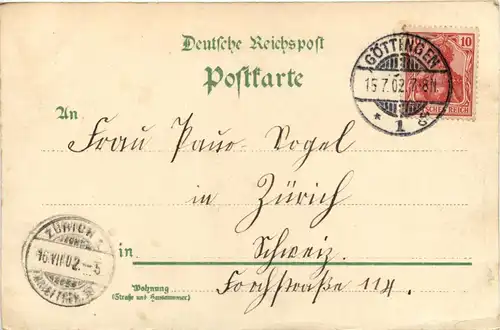 Deutsche Reichspost
Postkarte
10
GÖTTINGEN
15.7.02. 7-8N.
* 1
REICH
An
Frau
in Zürich
in Schweiz.
Wohnung
(Straße und Hausnummer)
Forchstraße 114.
ZÜRICH
16.VII.02.-5